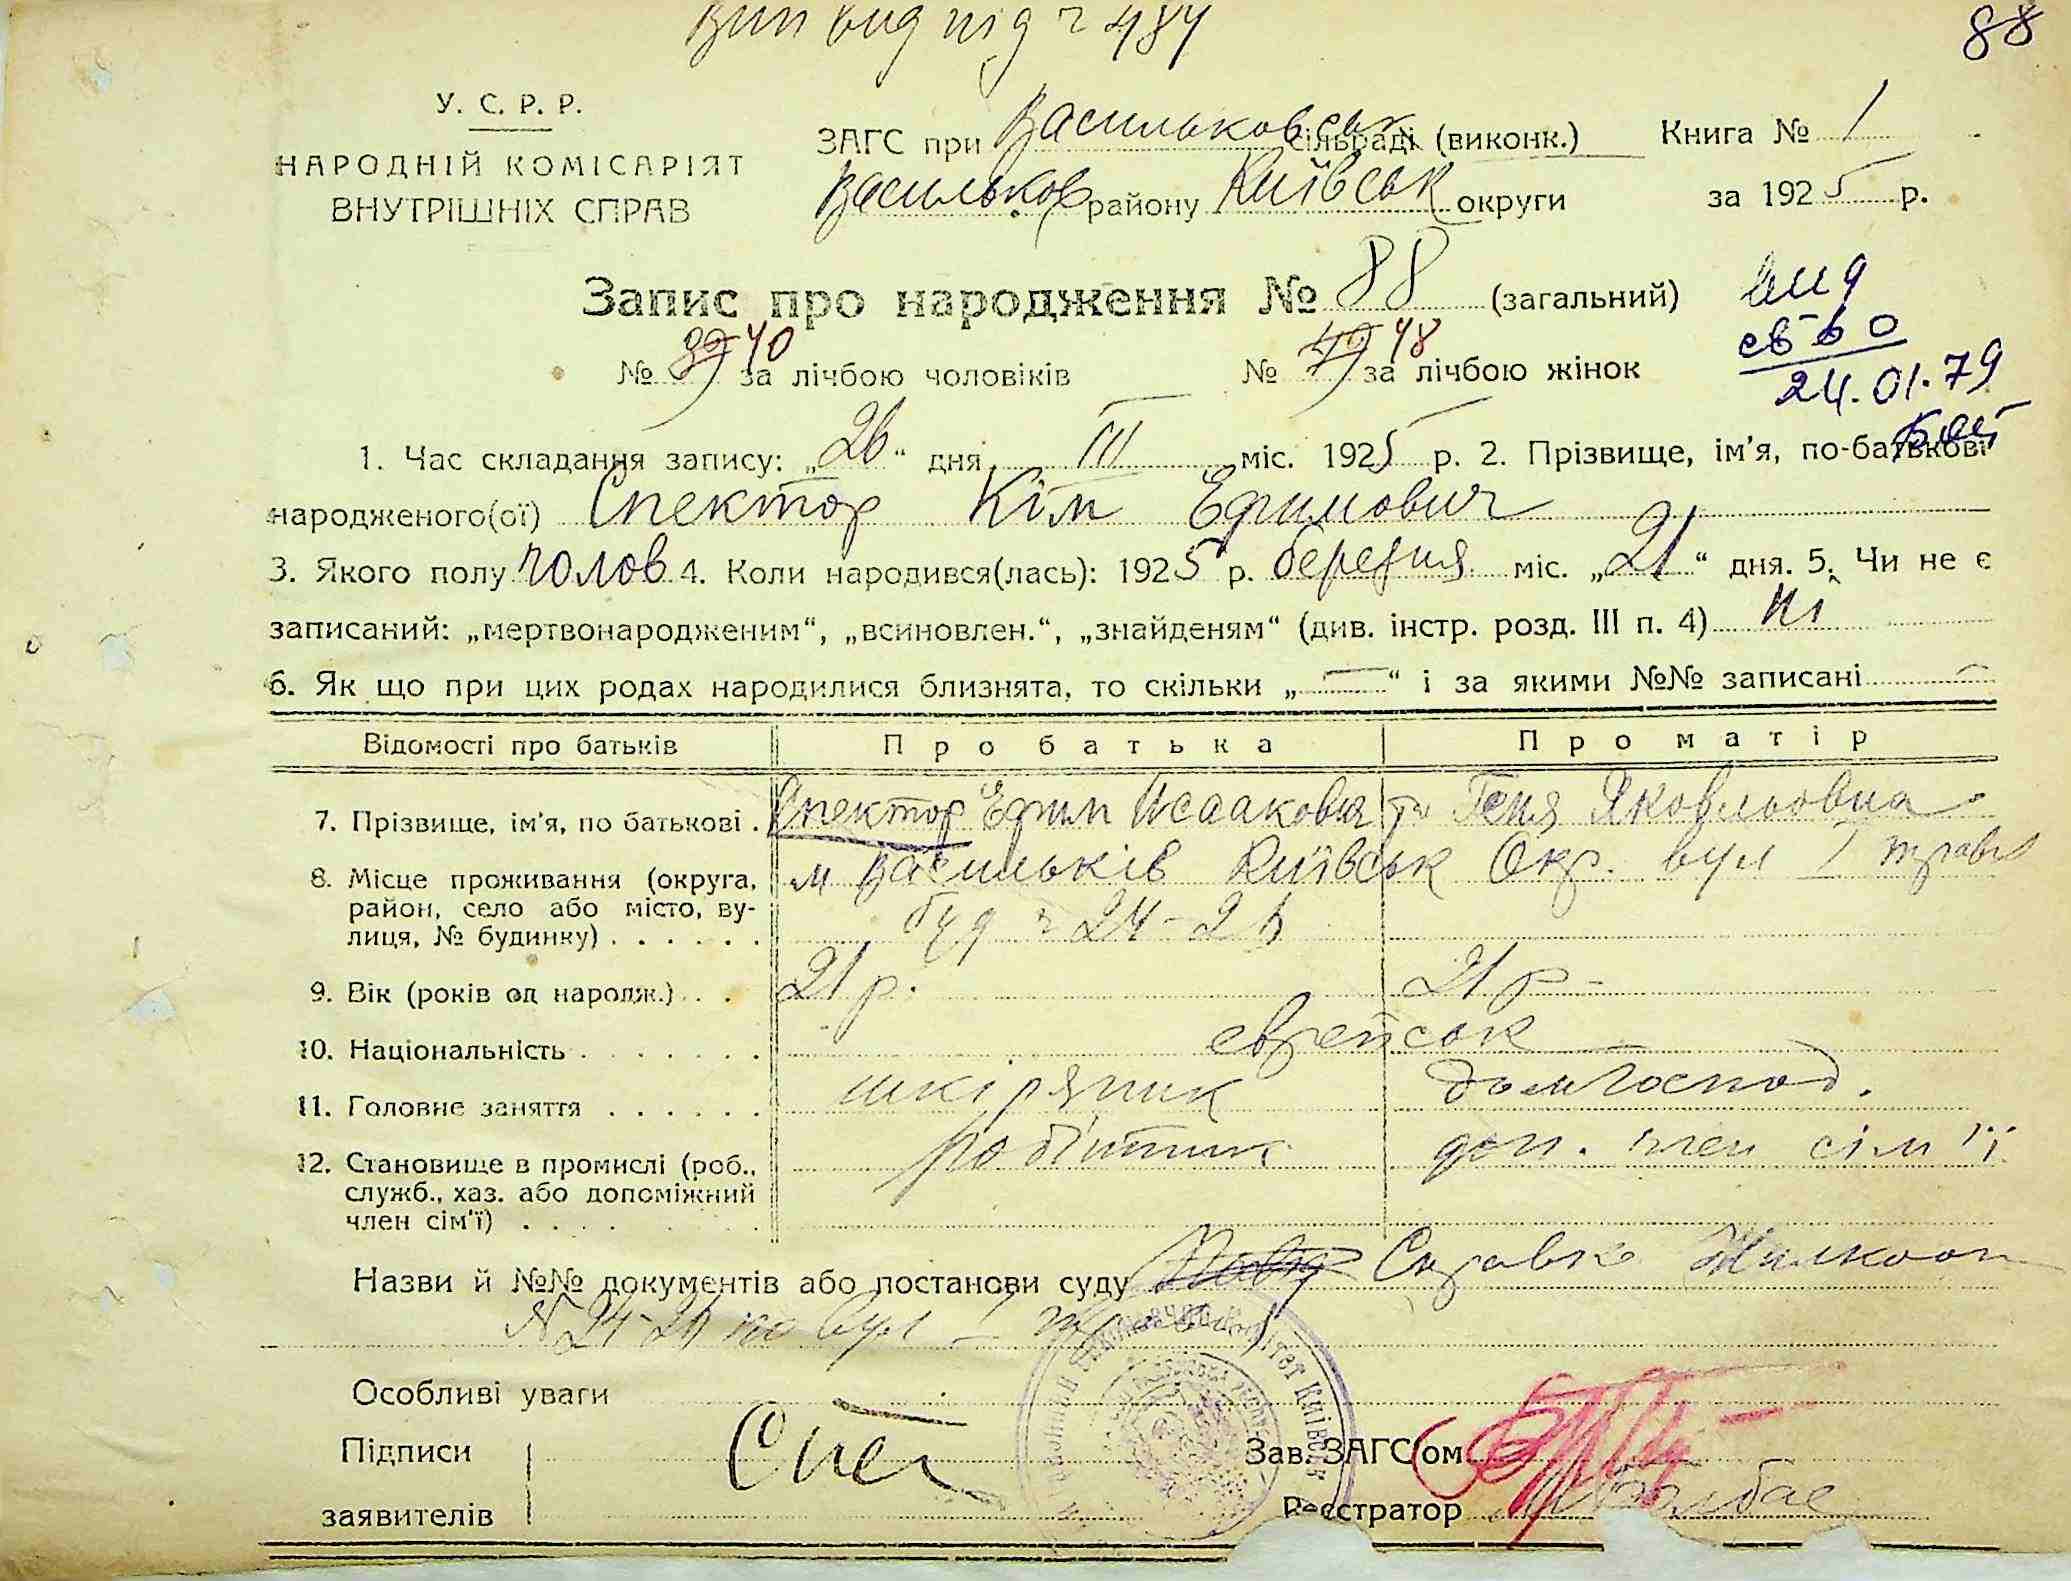 Вип вид під ч 484
88
У. С. Р. Р.
НАРОДНІЙ КОМІСАРІЯТ
ВНУТРІШНІХ СПРАВ
ЗАГС при Васильковськ сільраді (виконк.) Книга № 1
Васильков району Київськ округи за 1925 р.
Запис про народження № 88 (загальний)
№ 39 40 за лічбою чоловіків № 49 48 за лічбою жінок
вид
св-во
24.01.79
1. Час складання запису: „26“ дня III міс. 1925 р. 2. Прізвище, ім'я, по-батькові
народженого(ої) Спектор Кім Ефимович
3. Якого полу чолов 4. Коли народився(лась): 1925 р. березня міс. „21“ дня. 5. Чи не є
записаний: „мертвонародженим“, „всиновлен.“, „знайденям“ (див. інстр. розд. III п. 4) ні
6. Як що при цих родах народилися близнята, то скільки „—“ і за якими №№ записані —
Відомості про батьків Про батька Про матір
7. Прізвище, ім'я, по батькові . Спектор Ефим Исаакович та Геня Яковльовна
8. Місце проживання (округа, район, село або місто, вулиця, № будинку) . . . . . . м Васильків Київськ Окр. вул I травня
буд ч 24-26
9. Вік (років од народж.) . . . 21 р. 21 р -
10. Національність . . . . . . . еврейськ
11. Головне заняття . . . . . . шкіряник домгоспод.
12. Становище в промислі (роб., служб., хаз. або допоміжний член сім'ї) . . . . робітник доп. член сім'ї
Назви й №№ документів або постанови суду Справка Жилкооп
N 24-26 по вул I травня
Особливі уваги
Підписи
заявителів
Спек
Зав. ЗАГС'ом
Реєстратор